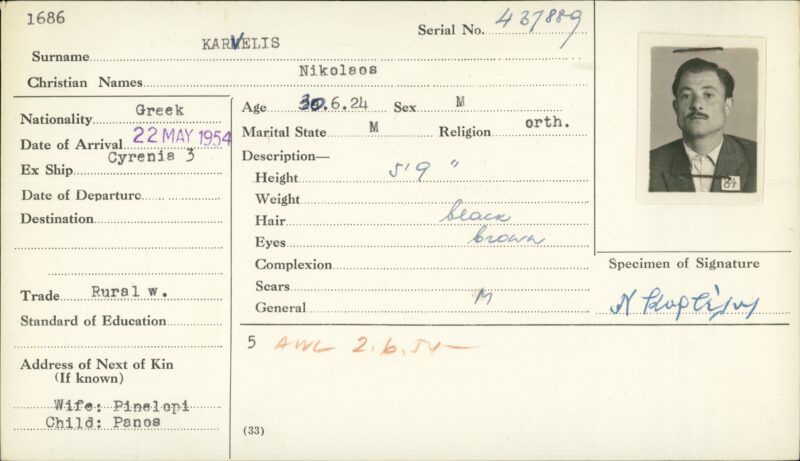 1686
Serial No. 437889
Surname KARVELIS
Christian Names Nikolaos
Nationality Greek
Date of Arrival 22 MAY 1954
Ex Ship Cyrenia 3
Date of Departure
Destination
Trade Rural w.
Standard of Education
Address of Next of Kin
(If known)
Wife: Pinelopi
Child: Panos
Age 30.6.24 Sex M
Marital State M Religion orth.
Description—
Height 5'9"
Weight
Hair black
Eyes brown
Complexion
Scars
General M
5 AWL 2.6.54
(33)
84
Specimen of Signature